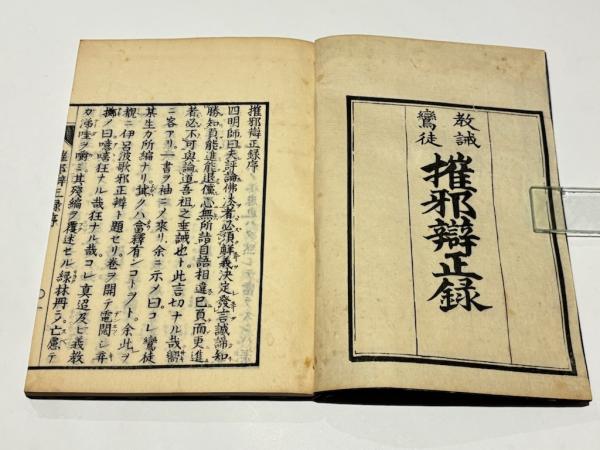 教誡
鸞徒
摧邪辯正録
摧邪辯正録序
四明師曰夫評論佛法者必須解義決定發言誠諦知
勝知負能進能退儻心無所詣自語相違已負而更進
者必不可與論道吾祖之垂誡也十此言切ナル哉
二客アリ一書ヲ袖ニシ來リ余ニ示メ曰コレ鸞徒
其生カ所編ナリ冀クハ當釋有ンコトヲト余此ヲ
觀ニ伊呂波歌邪正辨ト題セリ卷ヲ開テ電閲シ
擲ノ曰嘻嘻狂ナル哉狂ナル哉コレ真迢及ヒ義教
カ涕唾ヲ嘗ミ其殘編ヲ覆述セル
摧邪辯正録序